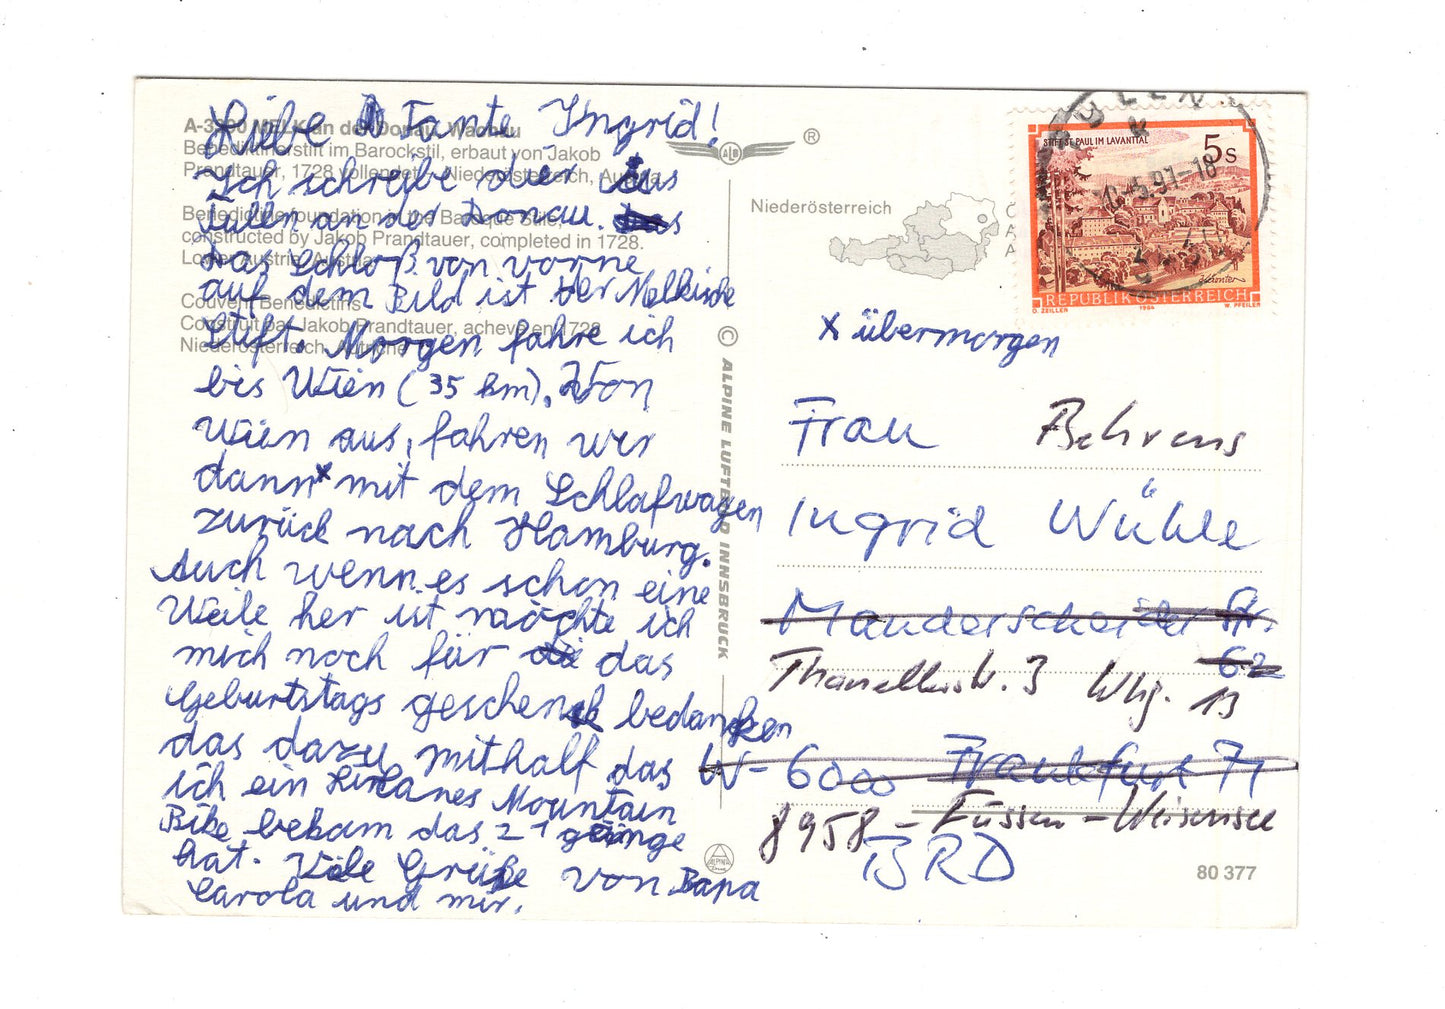 Liebe Tante Ingrid!
Ich schreibe dier aus
Tullen an der Donau.
Das Schloß von vorne
auf dem Bild ist der Melkische
Stift. Morgen fahre ich
bis Wien (35 km). Von
Wien aus, fahren wir
dann x mit dem Schlafwagen
zurück nach Hamburg.
Auch wenn es schon eine
Weile her ist möchte ich
mich noch für das
Geburtstags geschenk bedanken
das dazu mithalf das
ich ein Mountain
Bike bekam das 21 gänge
hat. Viele Grüße von Papa
Carola und mir.
A-3390 MELK an der Donau, Wachau
Benediktinerstift im Barockstil, erbaut von Jakob
Prandtauer, 1728 vollendet. Niederösterreich, Austria
Benedictine foundation in the Baroque Stile,
constructed by Jakob Prandtauer, completed in 1728.
Lower Austria, Austria
Couvent Benedictins
Construit par Jakob Prandtauer, acheve en 1728
Niederösterreich, Autriche
ALB
®
© ALPINE LUFTBILD INNSBRUCK
ALPINA
Niederösterreich
STIFT ST. PAUL IM LAVANTTAL
5s
REPUBLIK ÖSTERREICH
O. ZEILLER 1984 W. PFEILER
5.91-18
x übermorgen
Frau Behrens
Ingrid Wühle
Manderscheider Str.
62
Thanellerstr. 3 Whg. 13
W-6000 Frankfurt 71
8958 - Füssen - Weisensee
BRD
80 377